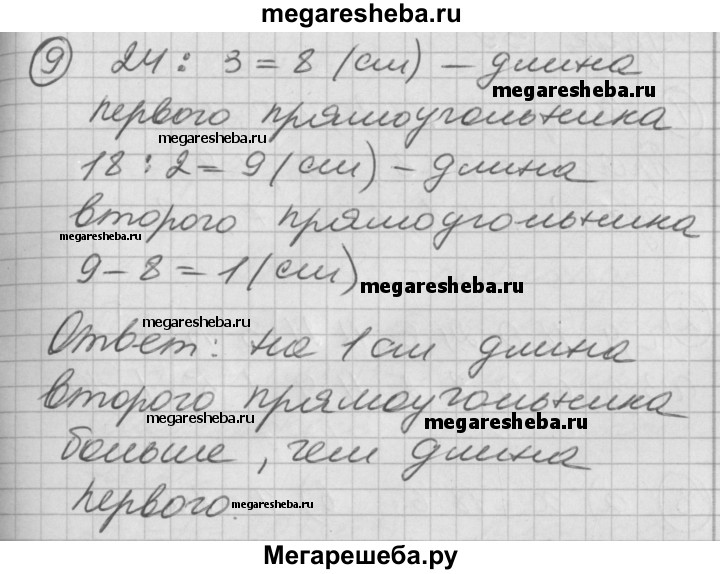 megaresheba.ru
9 24 : 3 = 8 (см) – длина
megaresheba.ru
первого прямоугольника
megaresheba.ru
18 : 2 = 9 (см) – длина
второго прямоугольника
megaresheba.ru
9 – 8 = 1 (см)
megaresheba.ru
megaresheba.ru
Ответ: на 1 см длина
второго прямоугольника
megaresheba.ru
megaresheba.ru
больше, чем длина
первого.
megaresheba.ru
Мегарешеба.ру